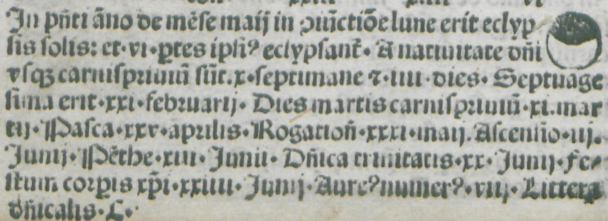 In pn̄ti āno de mēse maij in ꝯiūctiōe lune erit eclyp
sis solis: et·vi·ptes ipsiꝰ eclypsant̃·A natiuitate dn̄i
vsqꝫ carnispriuiū sūt·x·septimane ⁊·iiii·dies·Septuage
sima erit·xxi·februarij·Dies martis carnispriuiū·xi·mar
tij·Pasca·xxv·aprilis·Rogation̄·xxxi·maij·Ascensio·iij·
Junij·Pēthe·xiii·Junii·Dn̄ica trinitatis·xx·Junij·Fe-
stum corpis xp̄i·xxiiii·Junij·Aureꝰnumerꝰ·vij·Littera
dn̄icalis·C·